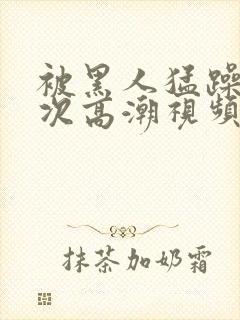 被黑人猛躁
次高潮視頻
抹茶加奶霜